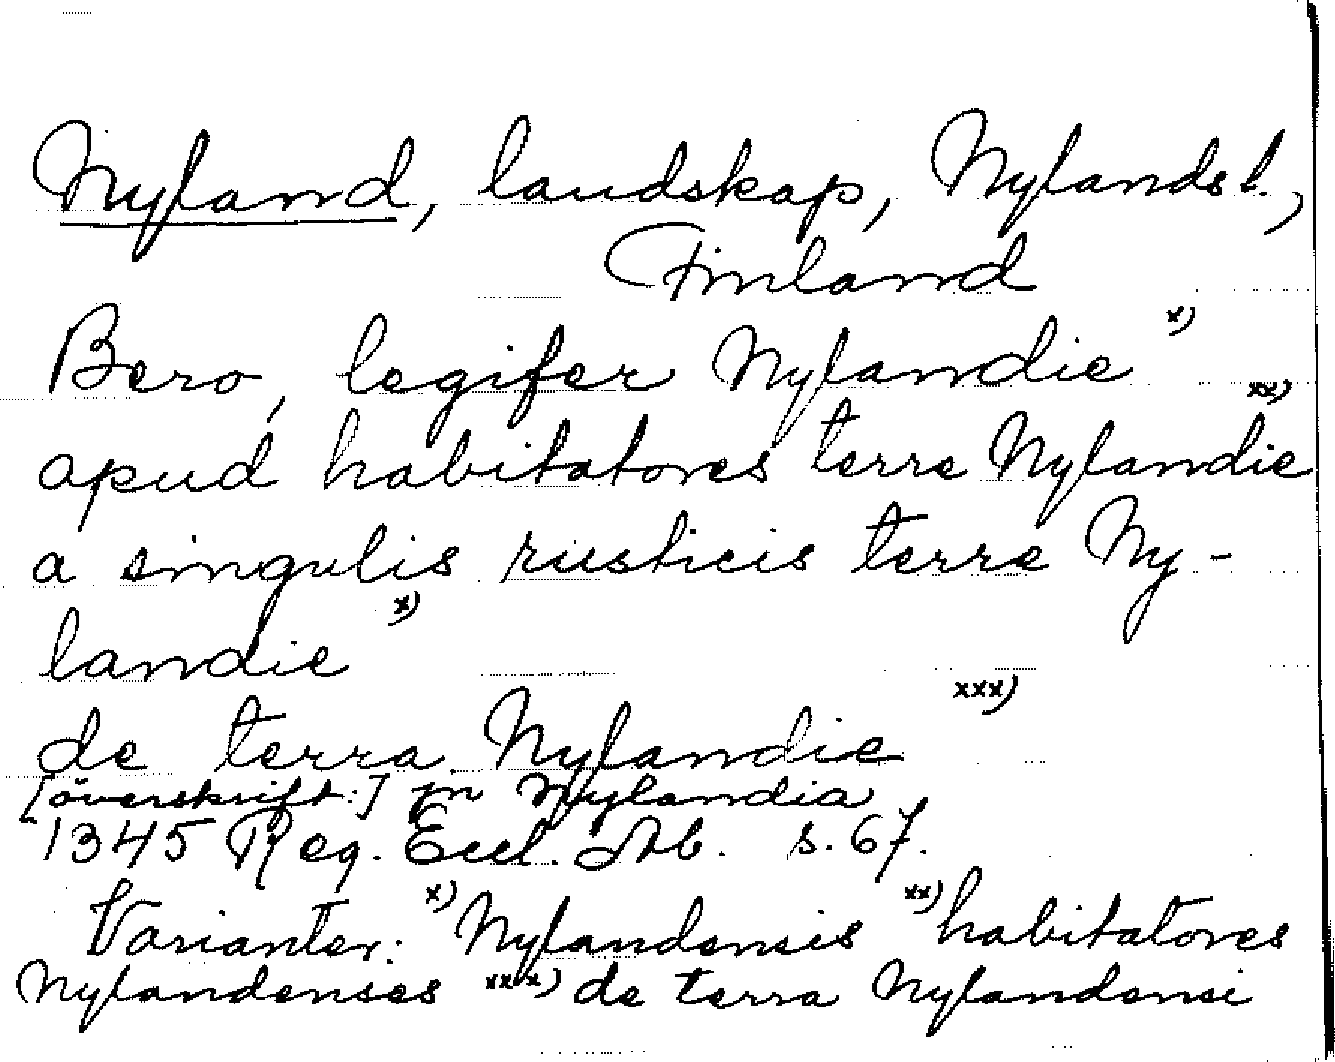 Nyland, landskap, Nylands l.,
Finland
Bero, legifer Nylandie x)
apud habitatores terre Nylandie xx)
a singulis rusticis terre Ny-
landie x)
de terra Nylandie xxx)
[överskrift:] in Nylandia
1345 Reg. Eccl. Ab. s. 67.
Varianter: x) Nylandensis xx) habitatores
Nylandenses xxx) de terra Nylandensi